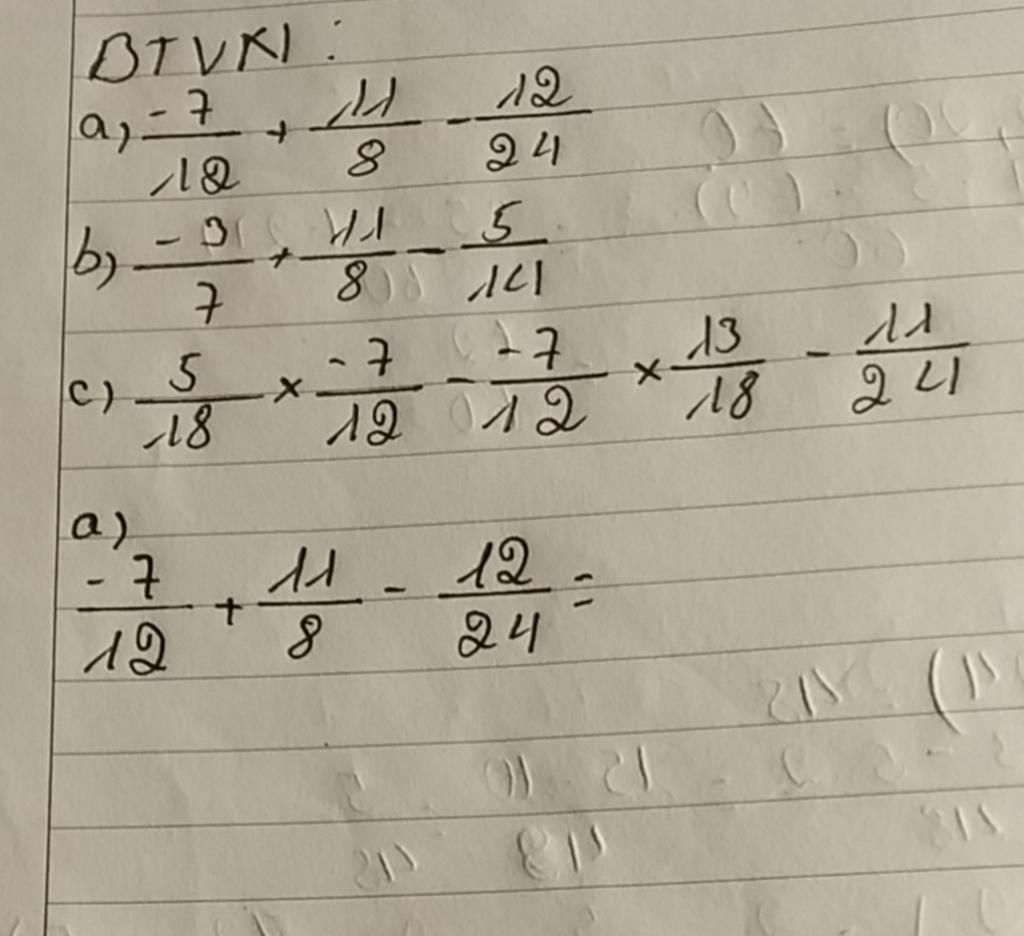 BTVN :
a) \frac{-7}{12} + \frac{11}{8} - \frac{12}{24}
b) \frac{-3}{7} + \frac{11}{8} - \frac{5}{14}
c) \frac{5}{18} × \frac{-7}{12} - \frac{-7}{12} × \frac{13}{18} - \frac{11}{24}
a)
\frac{-7}{12} + \frac{11}{8} - \frac{12}{24} =